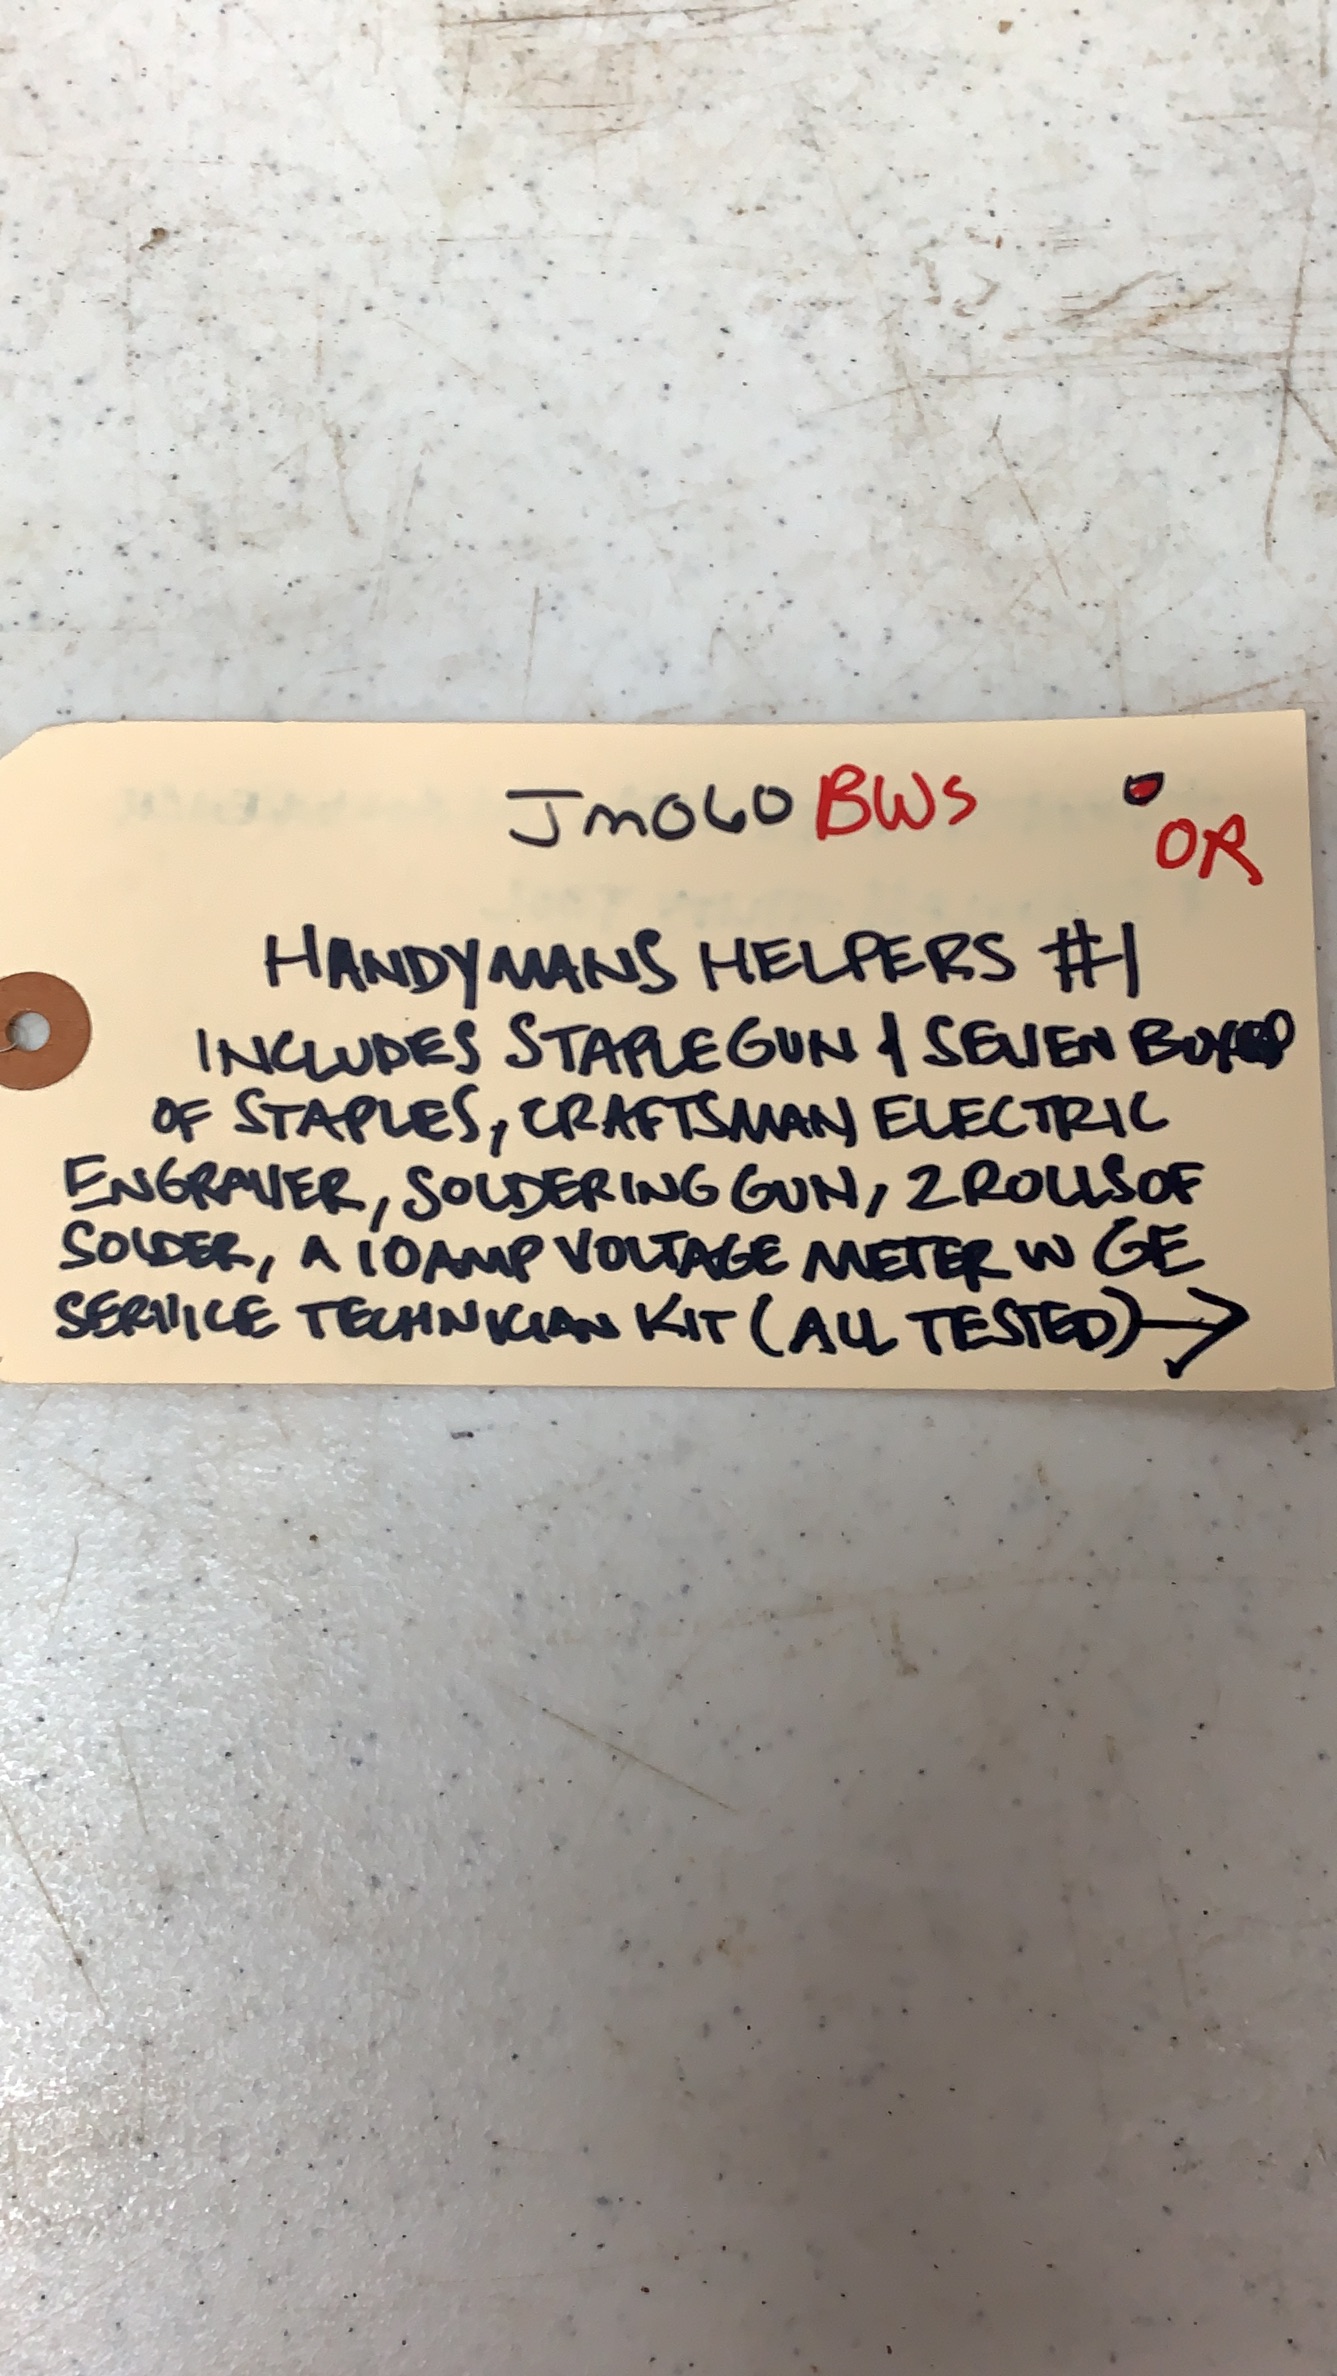 JM060 BWS
OR
HANDYMANS HELPERS #1
INCLUDES STAPLE GUN & SEVEN BOXES
OF STAPLES, CRAFTSMAN ELECTRIC
ENGRAVER, SOLDERING GUN, 2 ROLLS OF
SOLDER, A 10 AMP VOLTAGE METER W GE
SERVICE TECHNICIAN KIT (ALL TESTED) →